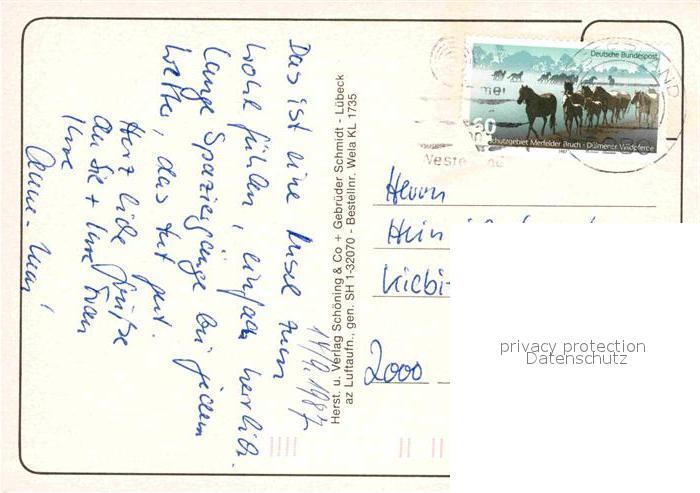 Das ist eine Insel zum
wohl fühlen, einfach herrlich.
Lange Spaziergänge bei jedem
Wetter, das tut gut.
Herzliche Grüße
an Sie + Ihre Frau
Ihre
14.9.1987
Herst. u. Verlag Schöning & Co + Gebrüder Schmidt - Lübeck
az Luftaufn., gen. SH 1-32070 - Bestellnr. Wela KL 1735
Deutsche Bundespost
60
schutzgebiet Merfelder Bruch - Dülmener Wildpferde
Herrn
Hein
Kiebi
2000
privacy protection
Datenschutz